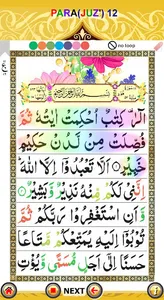 PARA(JUZ') 12
no loop
بِسْمِ اللّٰهِ الرَّحْمٰنِ الرَّحِيْمِ
الٓرٰ كِتٰبٌ اُحْكِمَتْ اٰيٰتُهٗ ثُمَّ
فُصِّلَتْ مِنْ لَّدُنْ حَكِيْمٍ
خَبِيْرٍ اَلَّا تَعْبُدُوْٓا اِلَّا اللّٰهَ
اِنَّنِيْ لَكُمْ مِّنْهُ نَذِيْرٌ وَّبَشِيْرٌ
وَّاَنِ اسْتَغْفِرُوْا رَبَّكُمْ ثُمَّ
تُوْبُوْٓا اِلَيْهِ يُمَتِّعْكُمْ مَّتَاعًا
حَسَنًا اِلٰٓى اَجَلٍ مُّسَمًّى وَّيُؤْتِ
NEXT